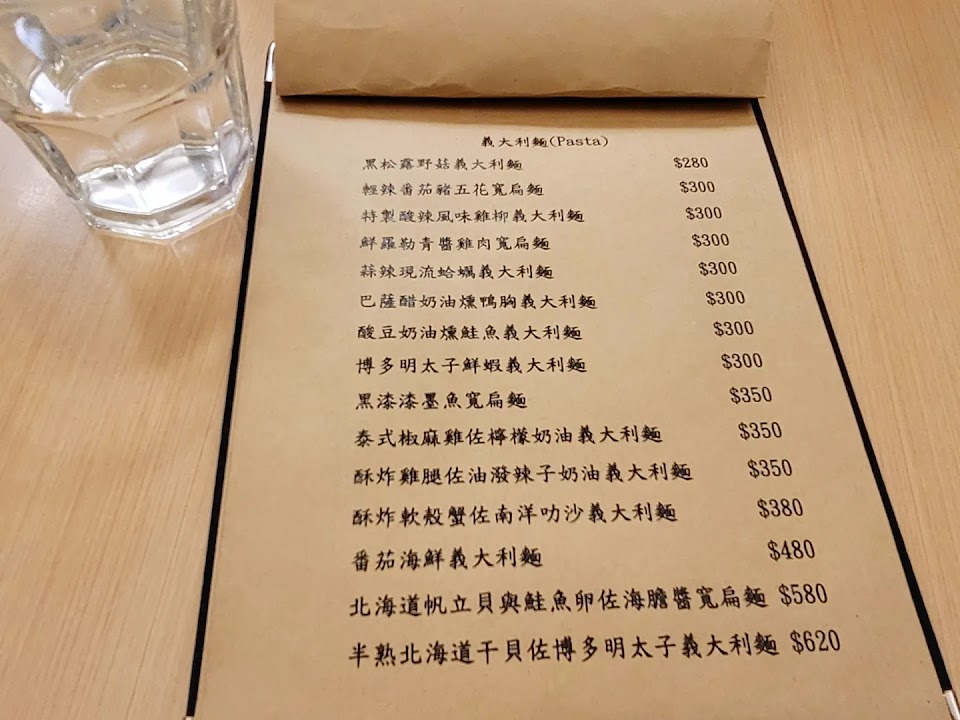 義大利麵(Pasta)
黑松露野菇義大利麵 $280
輕辣番茄豬五花寬扁麵 $300
特製酸辣風味雞柳義大利麵 $300
鮮羅勒青醬雞肉寬扁麵 $300
蒜辣現流蛤蠣義大利麵 $300
巴薩醋奶油燻鴨胸義大利麵 $300
酸豆奶油燻鮭魚義大利麵 $300
博多明太子鮮蝦義大利麵 $300
黑漆漆墨魚寬扁麵 $350
泰式椒麻雞佐檸檬奶油義大利麵 $350
酥炸雞腿佐油潑辣子奶油義大利麵 $350
酥炸軟殼蟹佐南洋叻沙義大利麵 $380
番茄海鮮義大利麵 $480
北海道帆立貝與鮭魚卵佐海膽醬寬扁麵 $580
半熟北海道干貝佐博多明太子義大利麵 $620